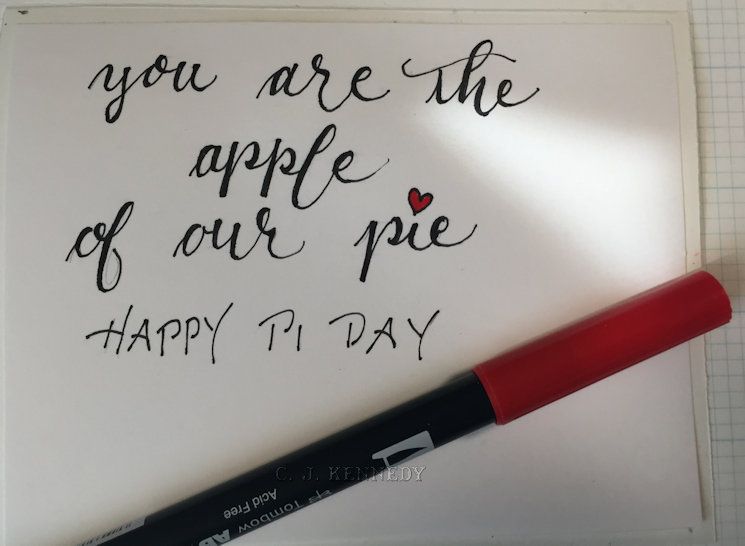 you are the
apple
of our pie
HAPPY PI DAY
C. J. KENNEDY
Tombow
Acid Free